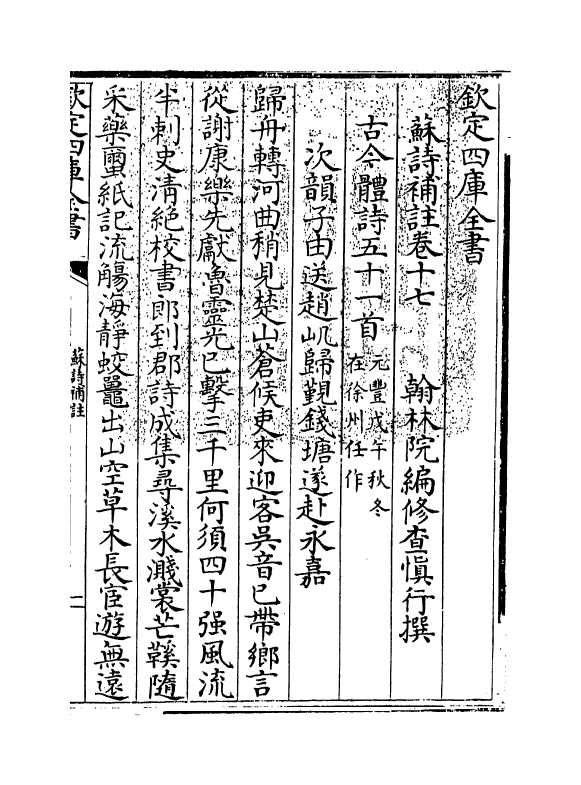 欽定四庫全書
蘇詩補註卷十七　翰林院編修查慎行撰
古今體詩五十一首元豐戊午秋冬
在徐州任作
次韻子由送趙㞦歸覲錢塘遂赴永嘉
歸舟轉河曲稍見楚山蒼候吏來迎客吳音已帶鄉言
從謝康樂先獻魯靈光已擊三千里何須四十强風流
半刺史清絶校書郎到郡詩成集尋溪水濺裳芒鞵隨
采藥蠒紙記流觴海靜蛟鼉出山空草木長宦遊無遠
欽定四庫全書
蘇詩補註
一